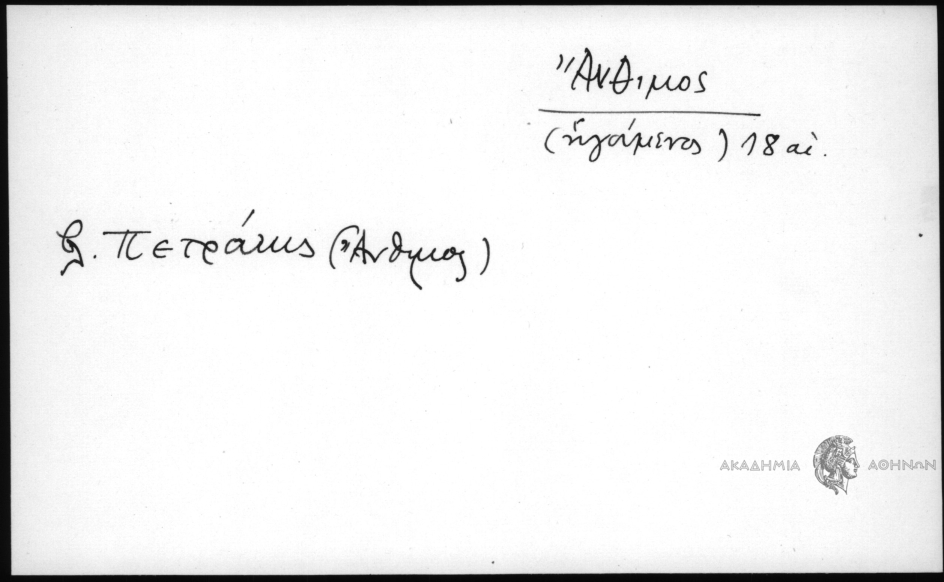 Ἄνθιμος
(ἡγούμενος) 18 αἰ.
βλ. Πετράκης (Ἄνθιμος)
ΑΚΑΔΗΜΙΑ ΑΘΗΝΩΝ